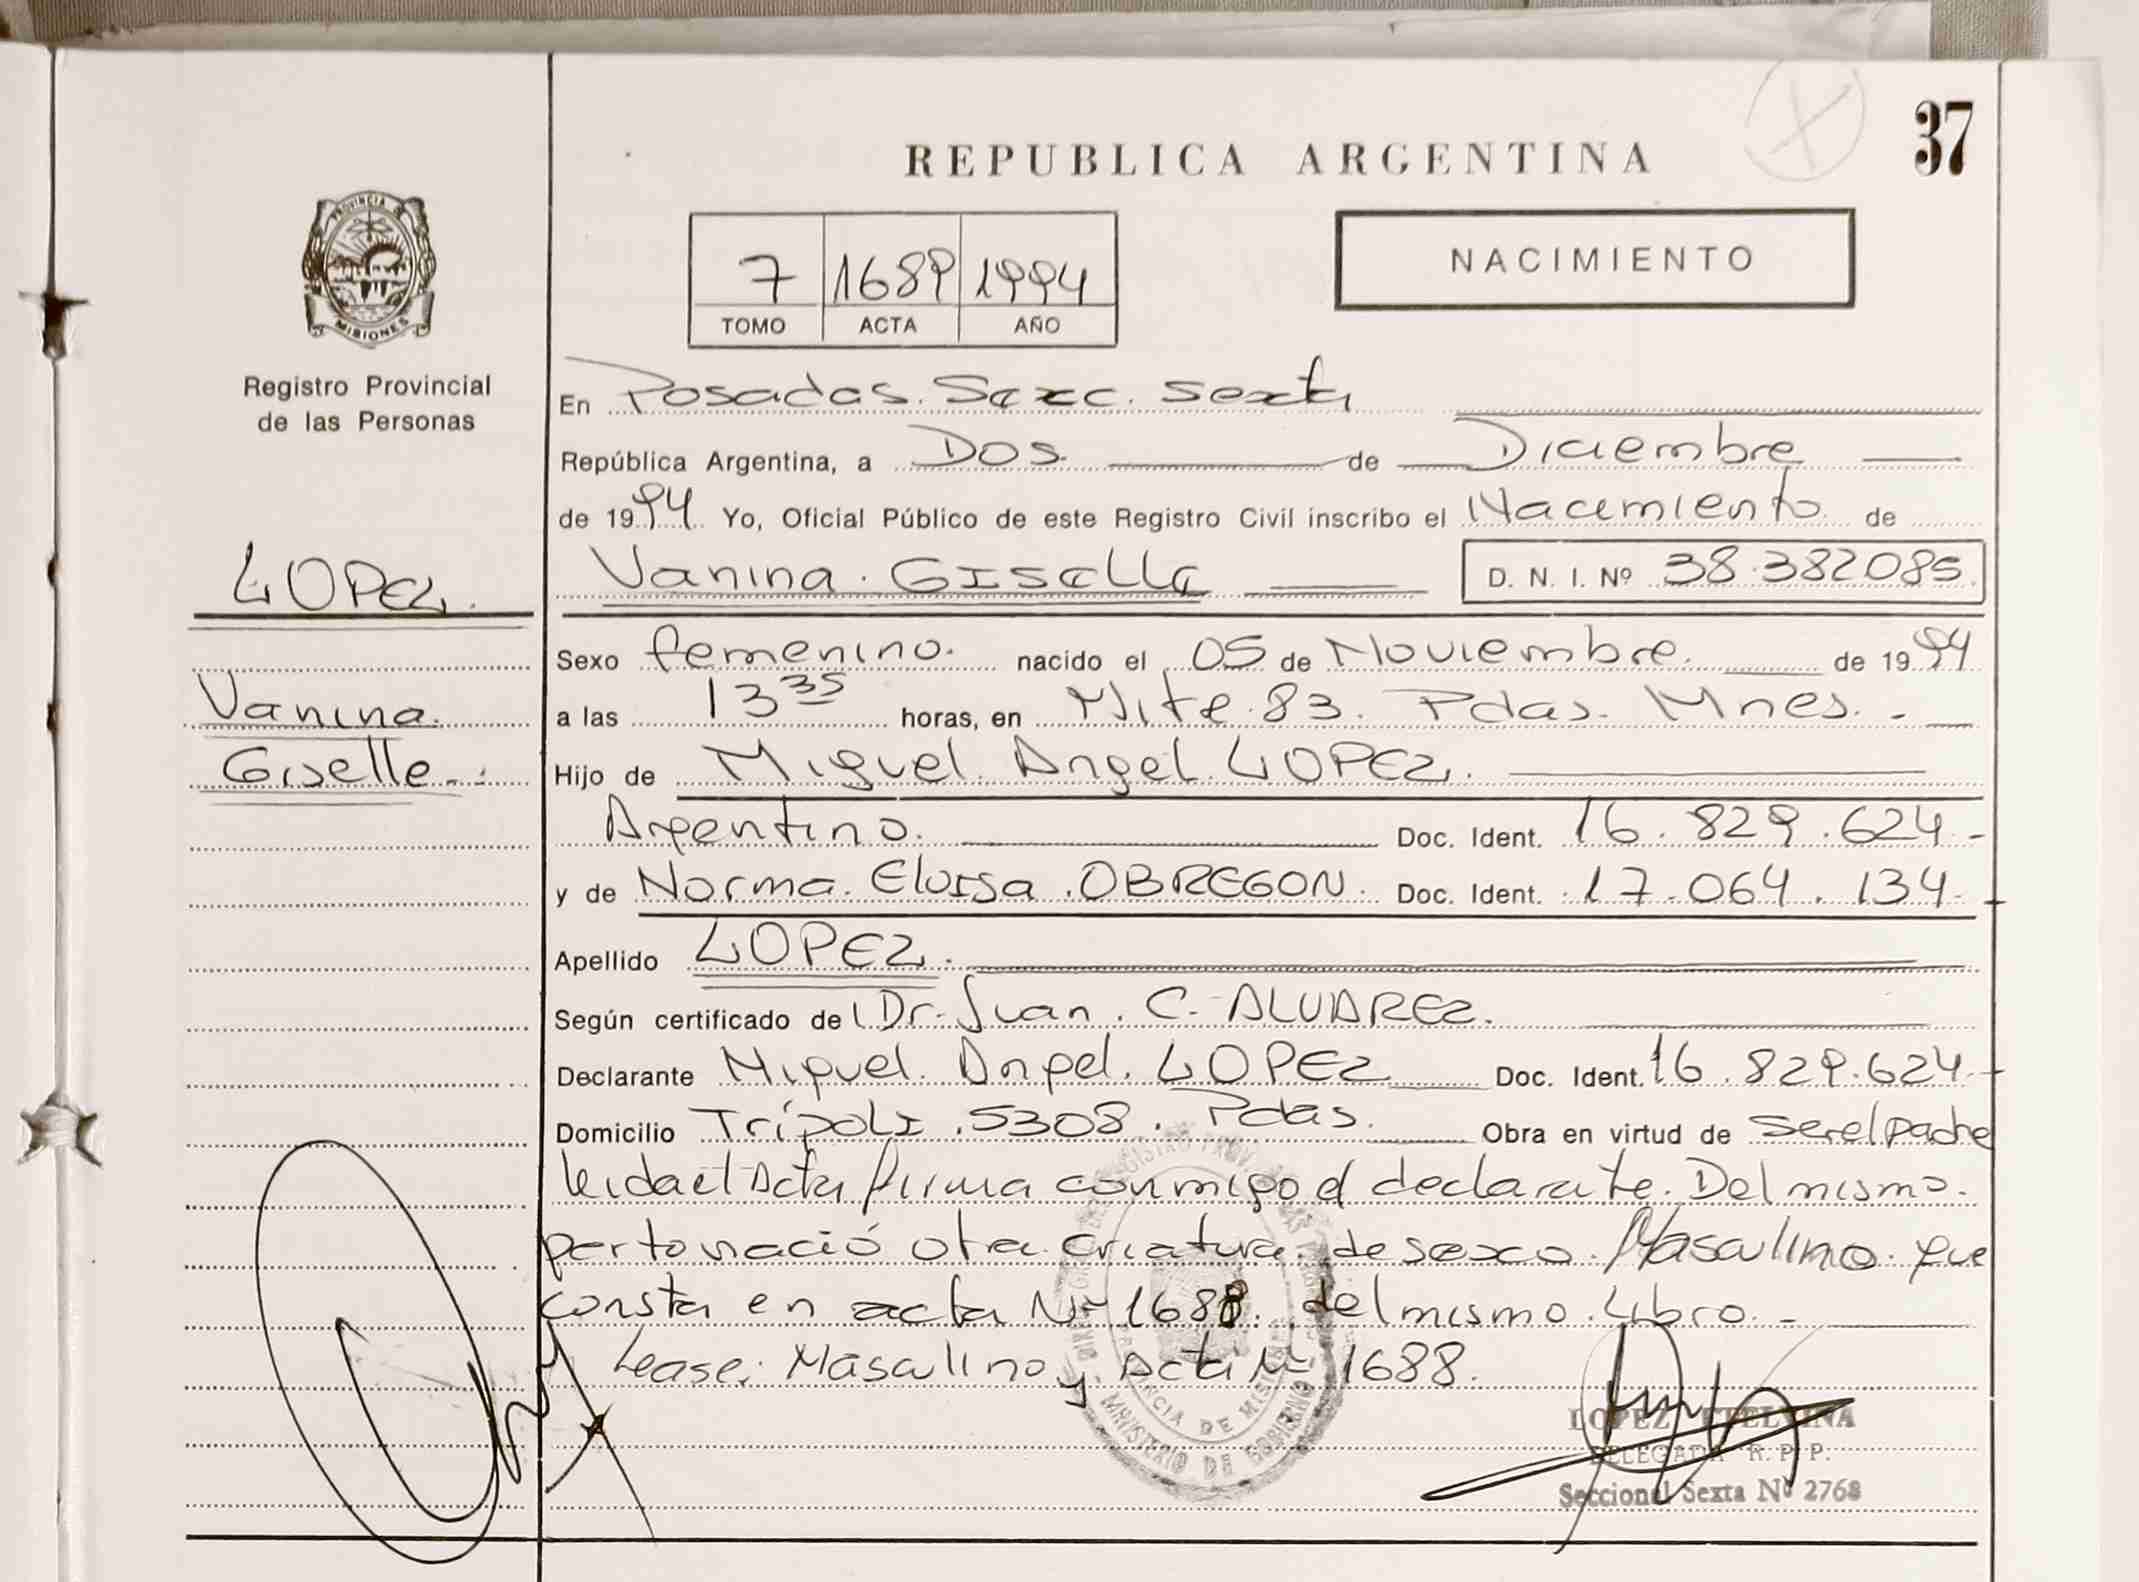 37
REPUBLICA ARGENTINA
PROVINCIA DE
MISIONES
Registro Provincial
de las Personas
7 1689 1994
TOMO ACTA AÑO
NACIMIENTO
En Posadas. Secc. Sexta
República Argentina, a Dos. de Diciembre
de 1994 Yo, Oficial Público de este Registro Civil inscribo el Nacimiento de
LOPEZ.
Vanina. Giselle D. N. I. Nº 38.382085
Sexo femenino. nacido el 05 de Noviembre. de 1994
Vanina.
a las 13 35 horas, en Mitre. 83. Pdas. Mnes. -
Giselle.-
Hijo de Miguel. Angel. LOPEZ.
Argentino. Doc. Ident. 16.829.624-
y de Norma. Eloisa. OBREGON. Doc. Ident. 17.064.134-
Apellido LOPEZ.
Según certificado de Dr. Juan. C. ALVAREZ.
Declarante Miguel. Angel. LOPEZ Doc. Ident. 16.829.624-
Domicilio Trípoli. 5308. Pdas. Obra en virtud de ser el padre
leida el Acta firma conmigo el declarate. Del mismo.
perto nació otra criatura de sexo Masculino que
consta en acta Nº 1688. del mismo Libro. -
Lease: Masculino y Acta Nº 1688.
PROVINCIA DE MISIONES
MINISTERIO DE GOBIERNO
LOPEZ ETELVINA
DELEGADA R. P. P.
Seccional Sexta Nº 2768